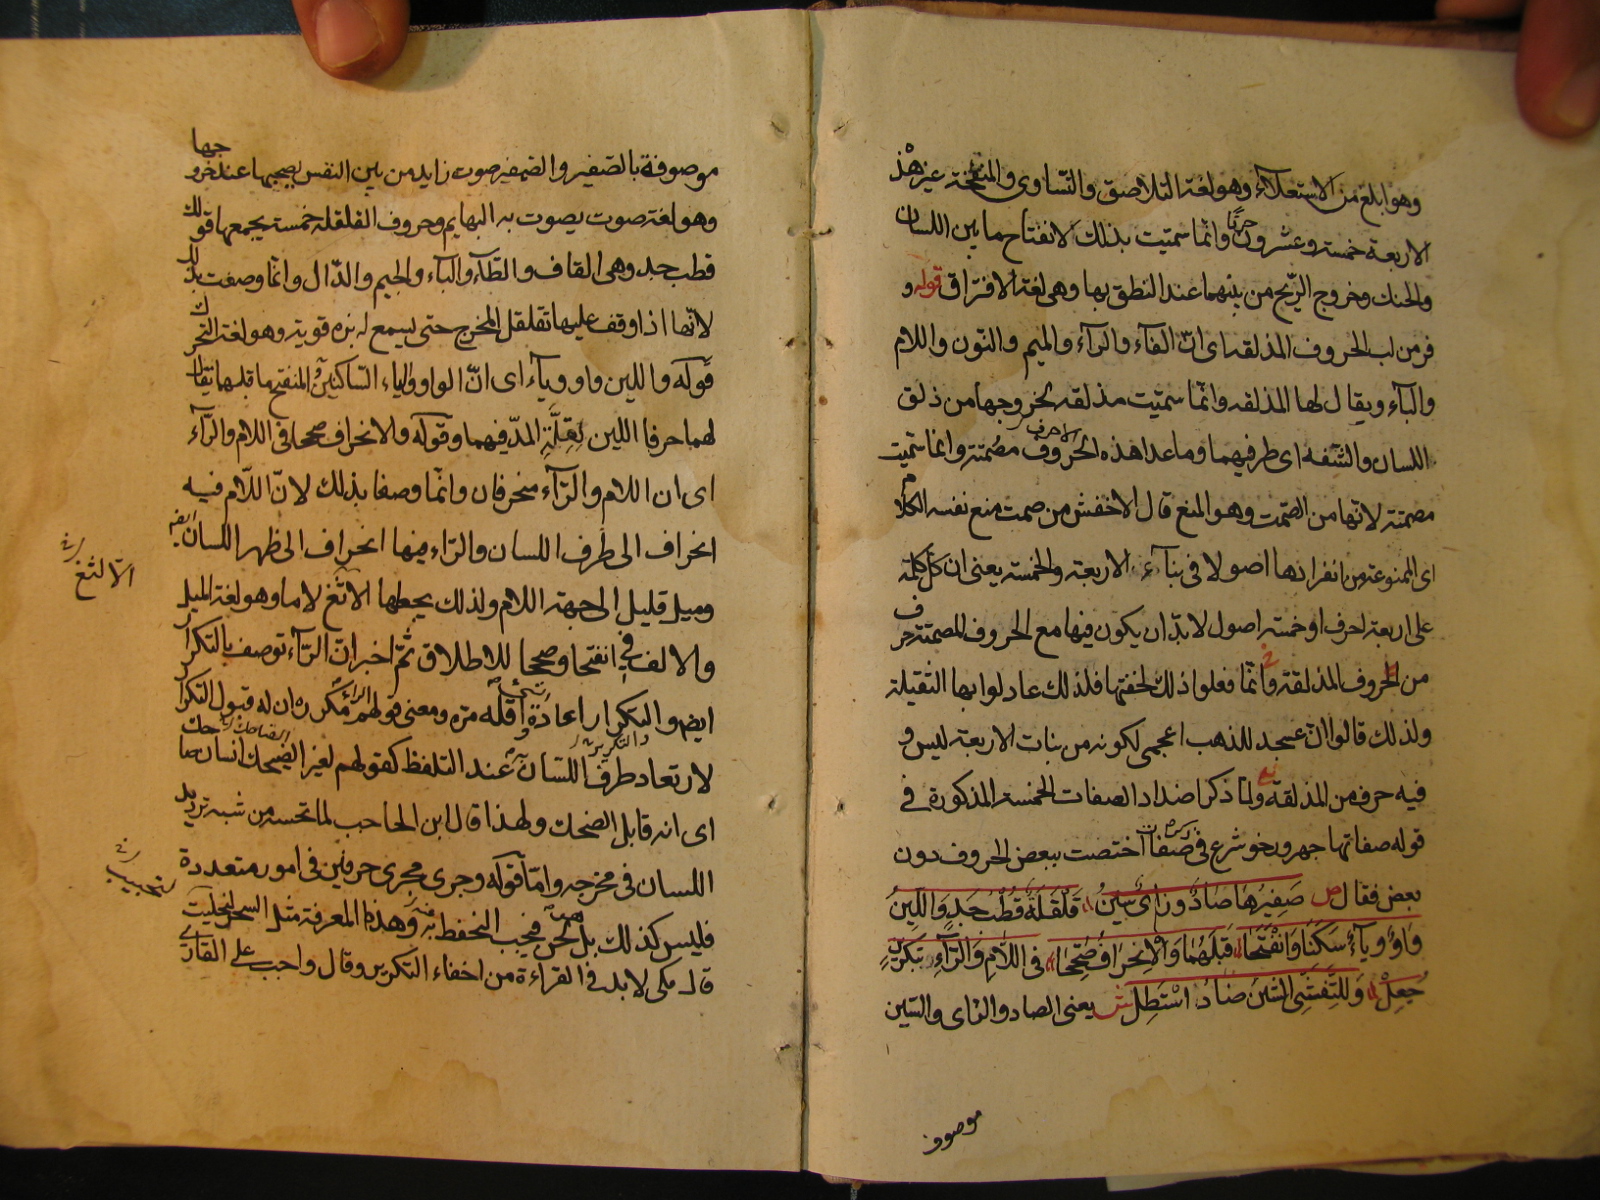 وهو ابلغ من الاستعلاء وهو لغة التلاصق والتساوى والمنفتحة غير هذه
الاربعة خمسة وعشرون حرفا وانما سميت بذلك لانفتاح ما بين اللسان
والحنك وخروج الريح من بينهما عند النطق بها وهى لغة الافتراق قوله و
فر من لب الحروف المذلقه اى ان الفاء والراء والميم والنون واللام
والباء ويقال لها المذلقه وانما سميت مذلقه لخروجها من ذلق
اللسان والشفه اى طرفيهما وما عدا هذه الاحرف الحروف مصمتة وانما سميت
مصمتة لانها من الصمت وهو المنع قال الاخفش من صمت منع نفسه الكلام
اى الممنوعة من انفرادها اصولا فى بناء الاربعة والخمسة يعنى ان كل كلمة
على اربعة احرف او خمسة اصول لابد ان يكون فيها مع الحروف المصمتة حرف
من الحروف المذلقة وانما فعلوا ذلك لخفتها فلذلك عادلوا بها الثقيلة
ولذلك قالوا ان عسجد للذهب اعجمى لكونه من بنات الاربعة ليس و
فيه حرف من المذلقة ولما ذكر اضداد الصفات الخمسة المذكورة فى
قوله صفاتها جهر ورخو شرع فى صفات اختصت ببعض الحروف دون
بعض فقال ص صَفِيرُهَا صَادٌ وَزَاىٌ سِينُ قَلْقَلَةٌ قُطْبُ جَدٍ وَاللِّينُ
وَاوٌ وَيَاءٌ سَكَنَا وَانْفَتَحَا قَبْلَهُمَا وَالْاِنْحِرَافُ صُحِّحَا فى اللَّامِ وَالرَّاءِ وَبِتَكْرِيرٍ
جُعِلْ وَلِلتَّفَشِّى الشِّينُ ضَادً اسْتَطِلْ ش يعنى الصاد والزاى والسين
موصوف
موصوفة بالصفير والصفير صوت زايد من بين النفس يصحبها عند خروجها
وهو لغة صوت يصوت به البهايم وحروف القلقلة خمسة يجمعها قولك
قطب جد وهى القاف والطاء والباء والجيم والدال وانما وصفت بذلك
لانها اذا وقف عليها تقلقل المخرج حتى يسمع له نبرة قوية وهو لغة التحرك
قوله واللين واو وياء اى ان الواو والياء الساكنين المنفتح ما قبلهما يقال
لهما حرفا اللين لِقِلَّةِ المد فيهما وقوله والانحراف صححا فى اللام والراء
اى ان اللام والراء منحرفان وانما وصفا بذلك لان اللام فيه
انحراف الى طرف اللسان والراء فيها انحراف الى ظهر اللسان ايضا
وميل قليل الى جهة اللام ولذلك يجعلها الالثغ لاما وهو لغة الميل
الالثغ
والالف فى انفتحا وصححا للاطلاق ثم اخبر ان الراء توصف بالتكرار
ايضا والتكرار اعادة اقله مرة ومعنى قولهم مكرر ان له قبول التكرار
لارتعاد طرف اللسان عند التلفظ كقولهم لغير الضاحك انسان ضاحك
اى انه قابل الضحك ولهذا قال ابن الحاجب لما تحسه من شبه ترديد
اللسان فى مخرجه واما قوله وجرى مجرى حرفين فى امور متعددة
فليس كذلك بل لحن فيجب التحفظ منه وهذا المعرفة مثل السحر
قال مكى لابد فى القراءة من اخفاء التكرير وقال واجب على القارئ